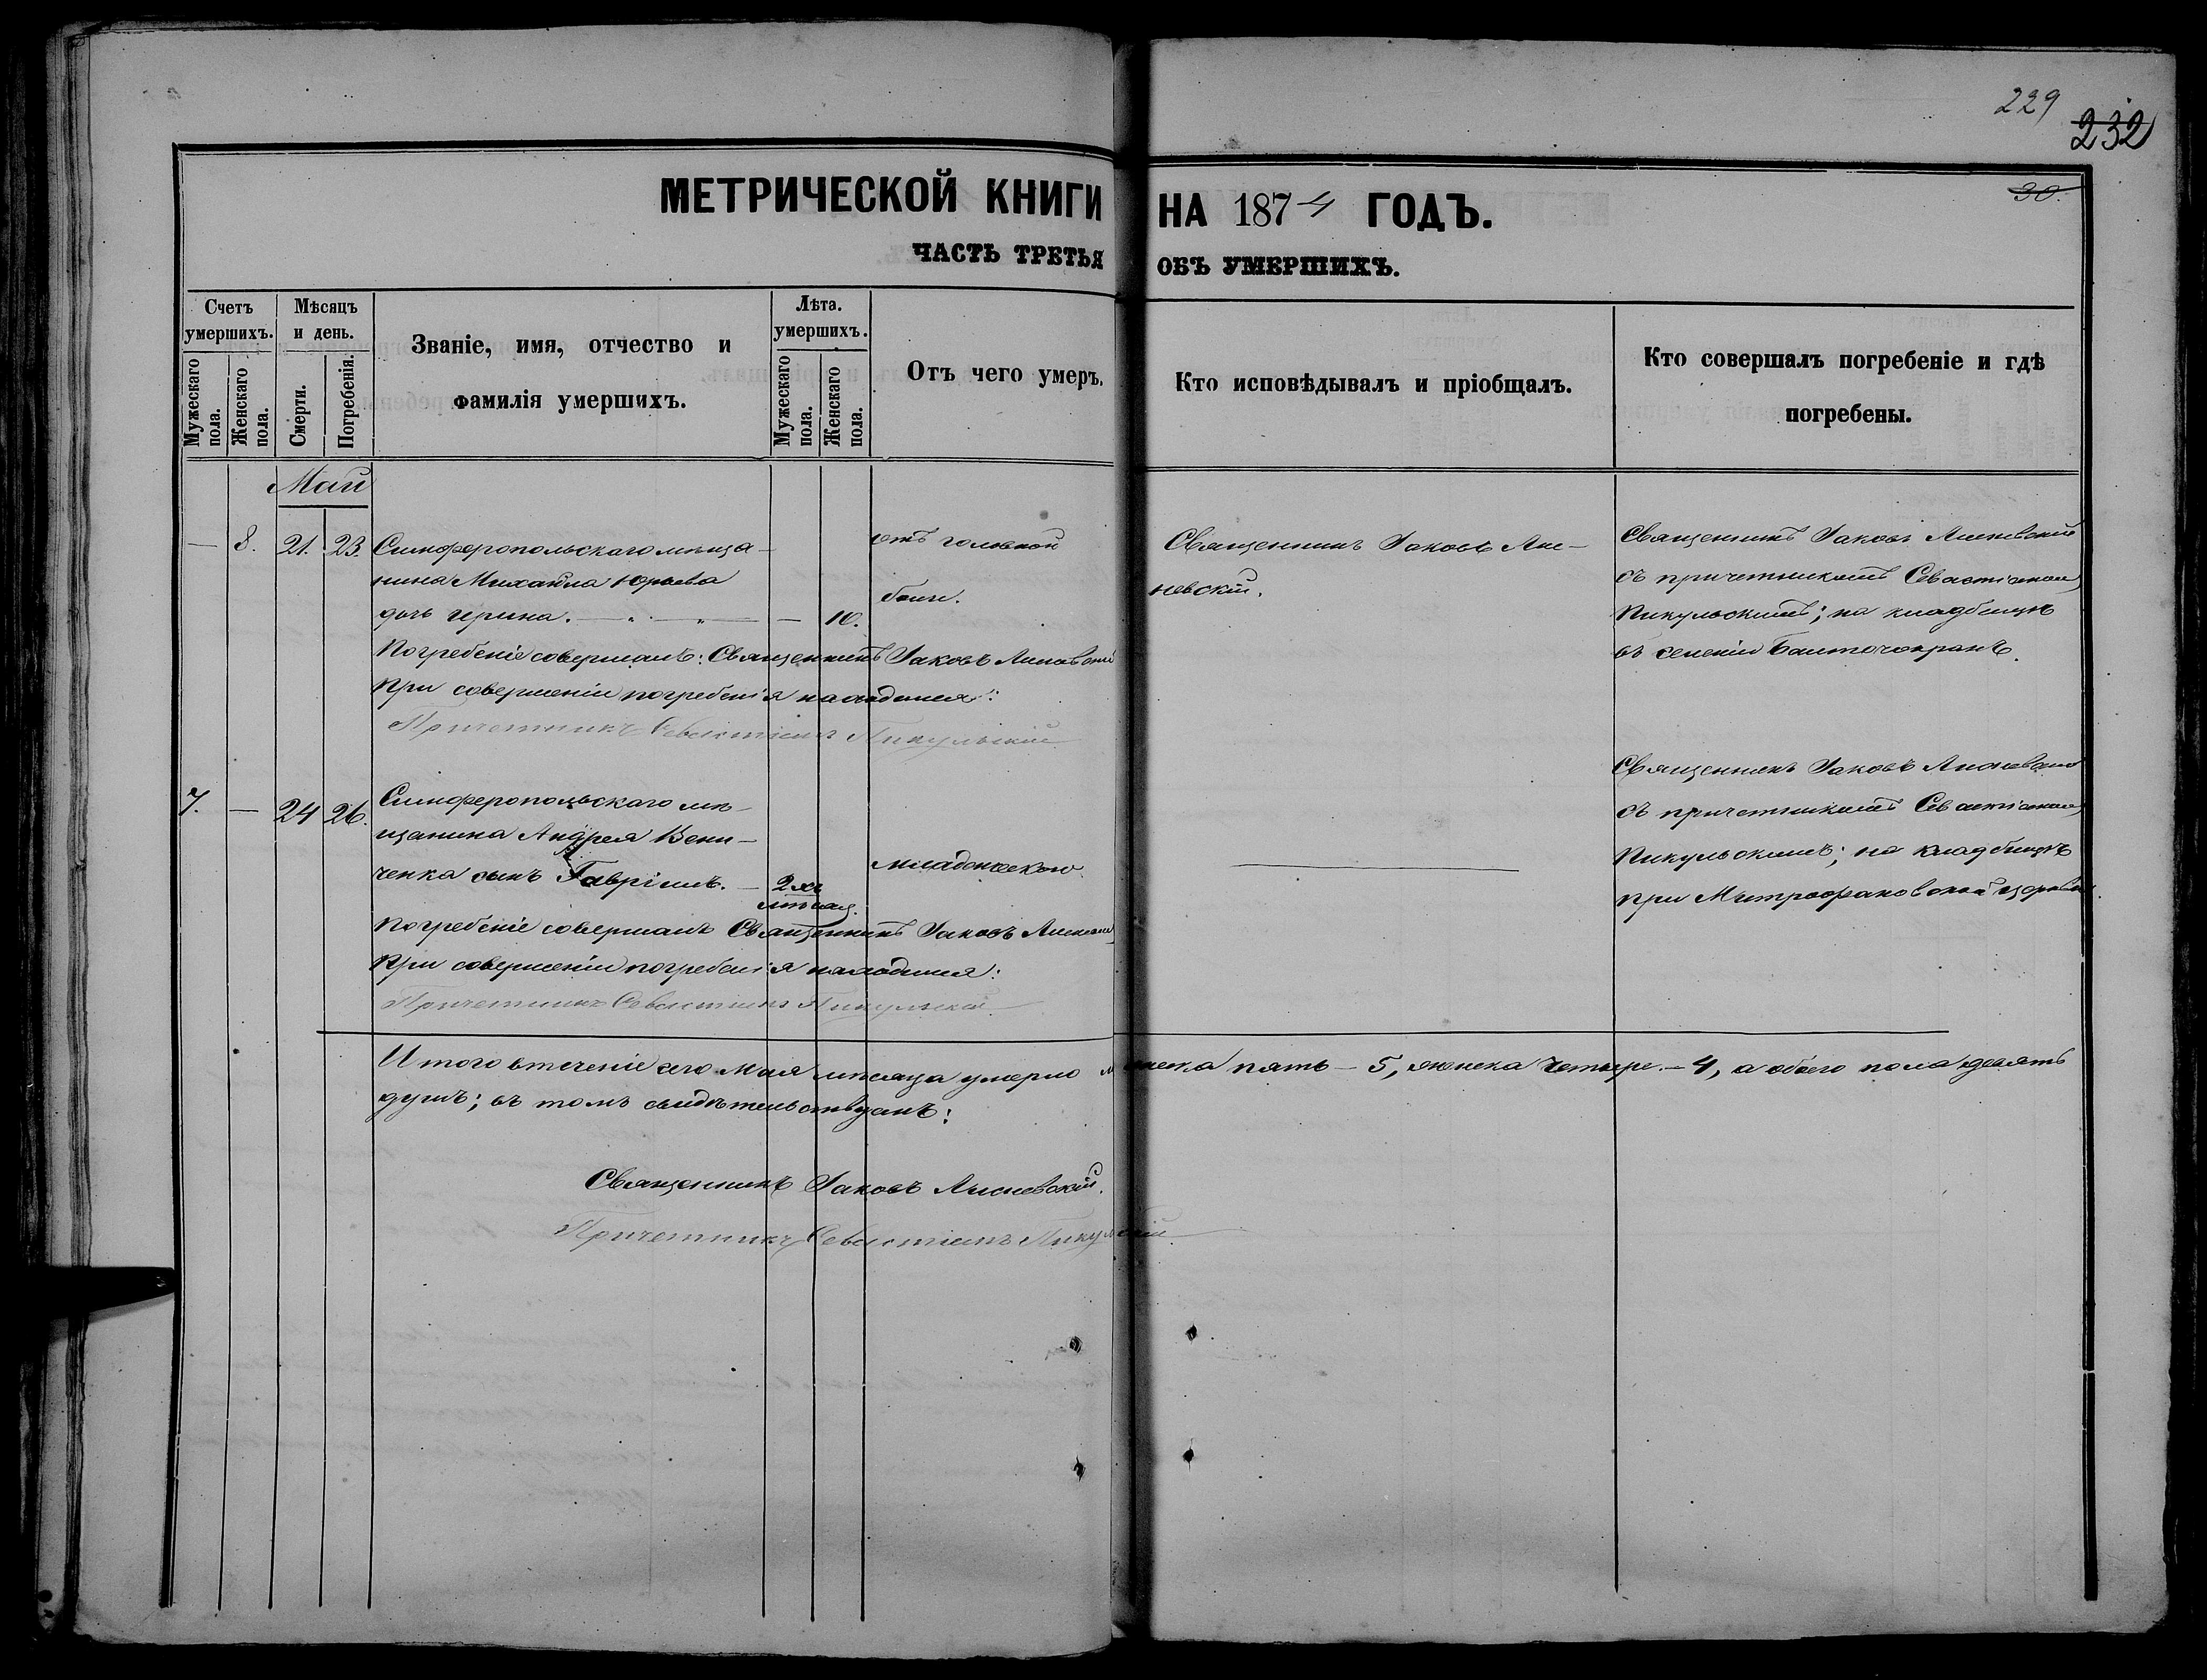 229
232
30.
МЕТРИЧЕСКОЙ КНИГИ НА 1874 ГОДЪ.
ЧАСТЬ ТРЕТЬЯ ОБЪ УМЕРШИХЪ.
Счетъ умершихъ.
Мужескаго пола.
Женскаго пола.
Мѣсяцъ и день.
Смерти.
Погребенія.
Званіе, имя, отчество и
фамилія умершихъ.
Лѣта. умершихъ.
Мужескаго пола.
Женскаго пола.
Отъ чего умеръ.
Кто исповѣдывалъ и пріобщалъ.
Кто совершалъ погребеніе и гдѣ
погребены.
Май
— 8. 21. 23. Симферопольскаго мѣща-
нина Михаила Юрьева
дочь Ирина. — 10.
отъ головной
боли.
Священникъ Іаковъ Лис-
невскій.
Священникъ Іаковъ Лисневскій
съ причетникомъ Севастіаном
Пикульскимъ; на кладбищѣ
въ селеніи
Погребеніе совершалъ: Священникъ Іаковъ Лисневскій
При совершеніи погребенія находился:
Причетникъ Севастіанъ Пикульскій
7. — 24 26. Симферопольскаго мѣ-
щанина Андрея Вени-
ченка сынъ Гавріилъ. — 2хъ
мѣсяц.
младенческою
Священникъ Іаковъ Лисневскій
съ причетникомъ Севастіаном
Пикульскимъ; на кладбищѣ
при Митрофановской церкви.
Погребеніе совершалъ Священникъ Іаковъ Лисневскій
При совершеніи погребенія находился:
Причетникъ Севастіанъ Пикульскій
Итого втеченіе сего Мая мѣсяца умерло мужеска пять — 5, женска четыре. — 4, а обоего пола девять
душъ; въ томъ свидѣтельствуемъ:
Священникъ Іаковъ Лисневскій.
Причетникъ Севастіанъ Пикульскій